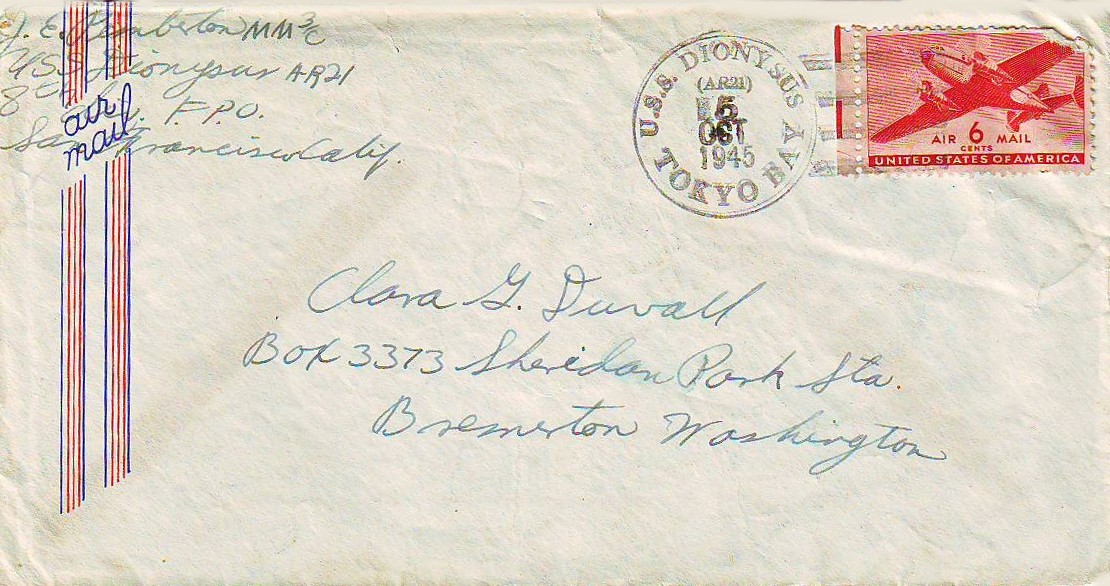 J. E. Pemberton MM3/C
USS Dionysus AR21
F.P.O.
San Francisco Calif.
air
mail
U.S.S. DIONYSUS
(AR21)
5
OCT
1945
TOKYO BAY
AIR 6 MAIL
CENTS
UNITED STATES OF AMERICA
Clara G. Duvall
Box 3373 Sheridan Park Sta.
Bremerton Washington